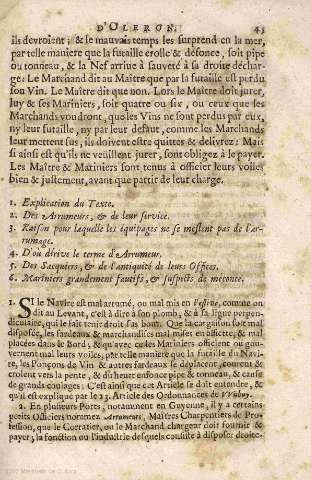 D'OLERON. 43
ils devroient ; & le mauvais temps les surprend en la mer,
par telle maniere que la futaille crolle & défonce, soit pipe
ou tonneau, & la Nef arrive à sauveté à sa droite déchar-
ge: Le Marchand dit au Maître que par sa futaille est perdu
son Vin. Le Maître dit que non. Lors le Maître doit jurer,
luy & ses Mariniers, soit quatre ou six, ou ceux que les
Marchands voudront, que les Vins ne sont perdus par eux,
ny leur futaille, ny par leur defaut, comme les Marchands
leur mettent sus, ils doivent estre quittes & délivrez: Mais
si ainsi est qu'ils ne veüillent jurer, sont obligez à le payer.
Les Maître & Mariniers sont tenus à officier leurs voiles
bien & justement, avant que partir de leur charge.
1. Explication du Texte.
2. Des Arrumeurs, & de leur service.
3. Raison pour laquelle les équipages ne se meslent pas de l'ar-
rumage.
4. D'où dérive le terme d'Arrumeur.
5. Des Sacquiers, & de l'antiquité de leurs Offices.
6. Mariniers grandement fautifs, & suspects de méconte.
1. SI le Navire est mal arrumé, ou mal mis en l'estive, comme on
dit au Levant, c'est à dire à son plomb, & à sa ligne perpen-
diculaire, qui le fait tenir droit sus bout. Que la cargaison soit mal
disposée, les fardeaux & marchandises mal mises en assiette, & mal
placées dans le Bord; & qu'avec ce les Mariniers officient ou gou-
vernent mal leurs voiles, par telle maniere que la futaille du Navi-
re, les Ponçons de Vin & autres fardeaux se déplacent, courent &
crolent vers la pente, & défoncent pipe & tonneau, & cause
de grands coulages: C'est ainsi que cet Article se doit entendre, &
qu'il est expliqué par le 23. Article des Ordonnances de VVisbuy.
2. En plusieurs Ports, notamment en Guyenne, il y a certains
petits Officiers nommez Arrumeurs, Maîtres Charpentiers de Pro-
fession, que le Corratier, ou le Marchand chargeur doit fournir &
payer; la fonction ou l'industrie desquels consiste à disposer droite-